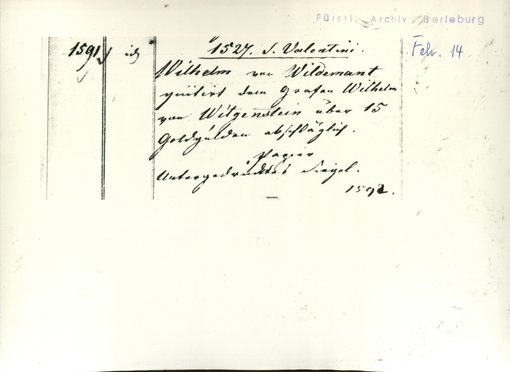 Fürstl. Archiv Berleburg
1591 id 1527. S. Valentini. Febr. 14.
Wilhelm von Wildemant
quitirt dem Grafen Wilhelm
von Witgenstein über 15
Goldgulden abschläglich.
Papier
Untergedrücktes Siegel.
1592.